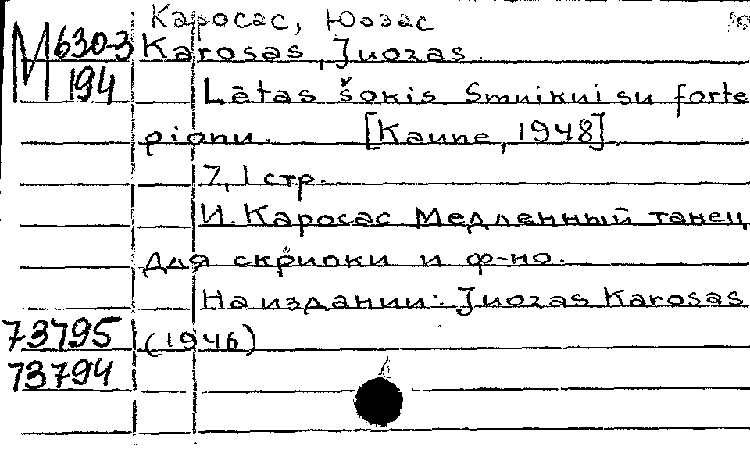 Каросас, Юозас
М 630-3 Karosas, Juozas.
194 Lētas šokis Smuikui su forte
pionu. [Kaune, 1948]
7, 1 стр.
И. Каросас. Медленный танец
для скрипки и ф-но.
На издании: Juozas Karosas
73795 (1946)
73794